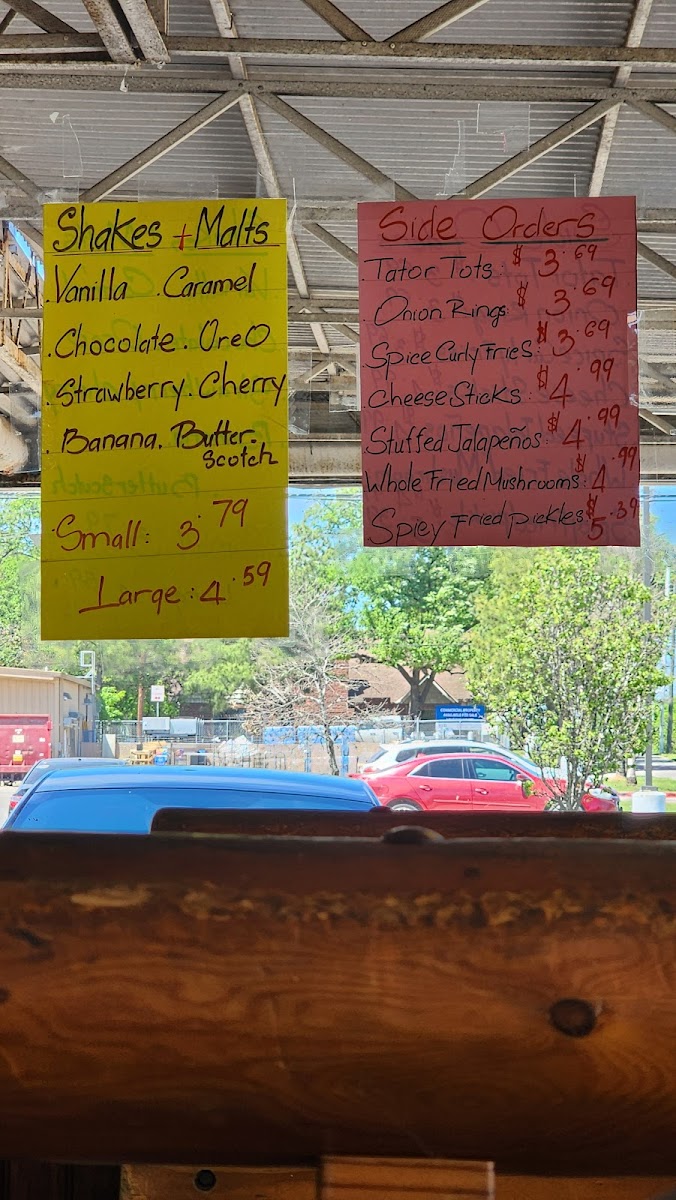 Shakes + Malts
.Vanilla .Caramel
.Chocolate. Oreo
.Strawberry. Cherry
. Banana. Butter.
Scotch
Small: 3.79
Large: 4.59
Side Orders
.Tator Tots: $3.69
.Onion Rings: $3.69
.Spice Curly Fries: $3.69
.Cheese Sticks: $4.99
.Stuffed Jalapeños: $4.99
.Whole Fried Mushrooms: $4.99
.Spicy Fried Pickles: $5.39
COMMERCIAL PROPERTY
AVAILABLE FOR SALE